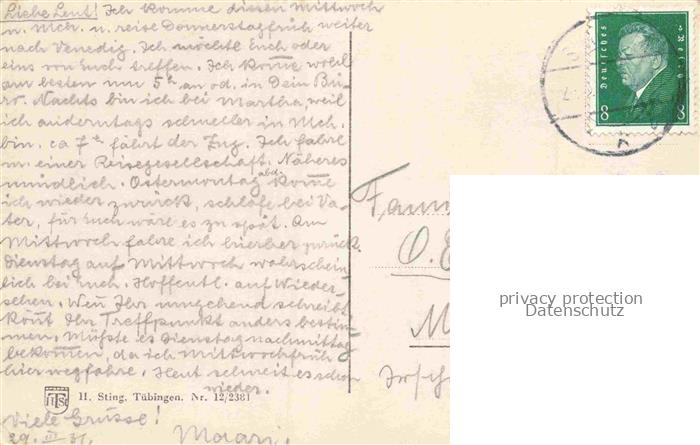 Liebe Leut! Ich komme diesen Mittwoch
n. Mch. u. reise Donnerstag früh weiter
nach Venedig. Ich möchte Euch oder
eins von Euch treffen. Ich kom̅e wohl
am besten um 5 h an od. in Dein Bü-
ro. Nachts bin ich bei Martha, weil
ich anderntags schneller in Mch.
bin. ca 7 h fährt der Zug. Ich fahre
m. einer Reisegesellschaft. Näheres
mündlich. Ostermontag abd. kom̅e
ich wieder zurück, schlafe bei Va-
ter, für Euch wäre es zu spät. Am
Mittwoch fahre ich hierher zurück.
Dienstag auf Mittwoch wahrschein-
lich bei Euch. Hoffentl. auf Wieder-
sehen. Wen̅ Ihr umgehend schreibt
kön̅t Ihr Treffpunkt anders bestim-
men. Müßte es Dienstag nachmittag
bekommen, da ich Mittwoch früh
hier wegfahre. Heut schneit es schon
wieder.
Viele Grüsse!
29. III 31. Maari.
HSt
H. Sting, Tübingen. Nr. 12/2381
Deutsches Reich
8 8
O.
M
privacy protection
Datenschutz